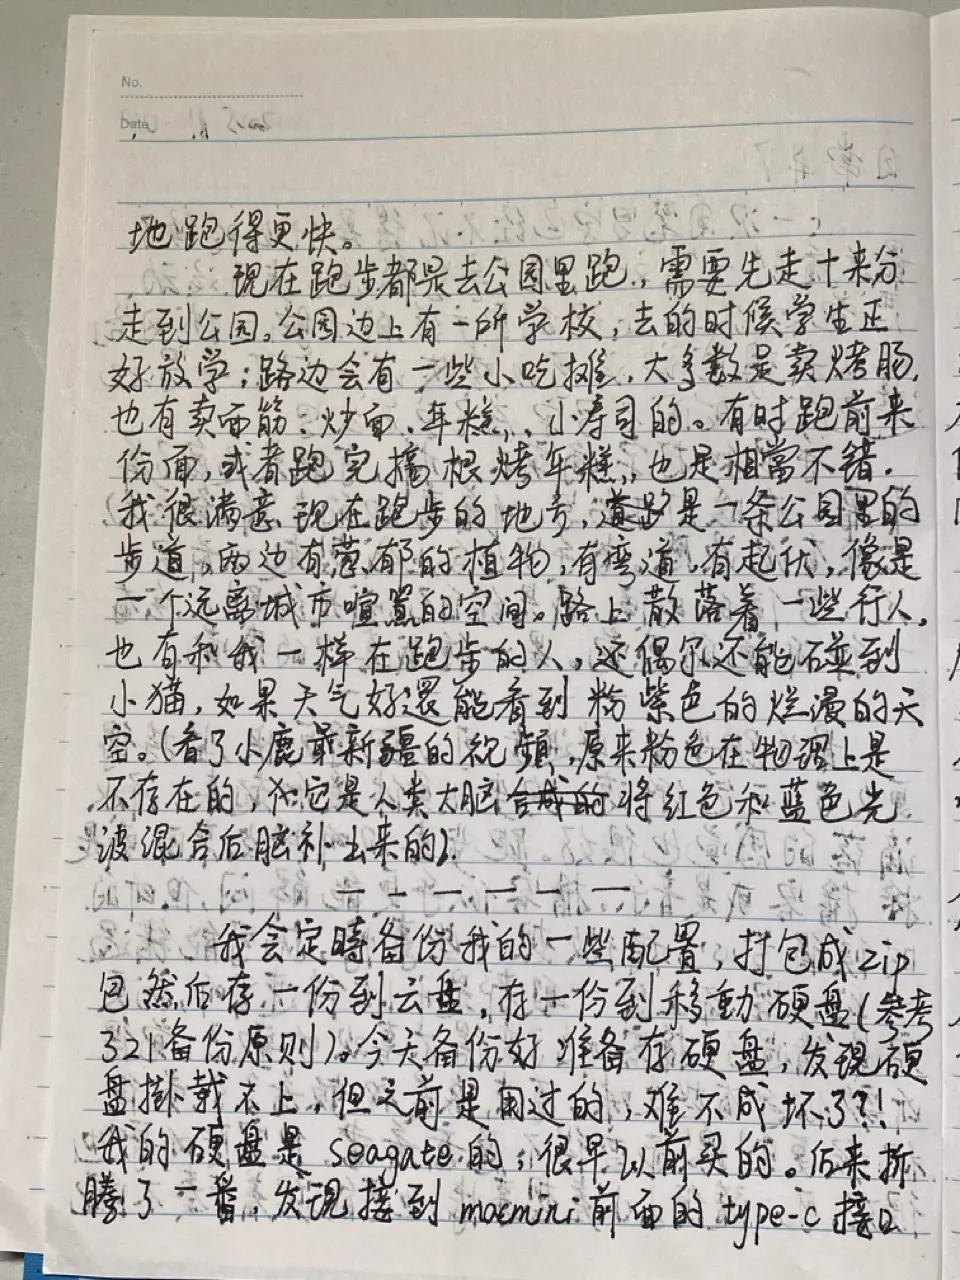 No.
Date
地跑得更快。
现在跑步都是去公园里跑，需要先走十来分
走到公园。公园边上有一所学校，去的时候学生正
好放学；路边会有一些小吃摊，大多数是卖烤肠，
也有卖面筋、炒面、年糕、小寿司的。有时跑前来
份面，或者跑完搞根烤年糕，也是相當不错。
我很满意现在跑步的地方，道路是一条公园里的
步道，两边有葱郁的植物，有弯道，有起伏，像是
一个远离城市喧嚣的空间。路上散落着一些行人，
也有和我一样在跑步的人，还偶尔还能碰到
小猫，如果天气好還能看到粉紫色的烂漫的天
空。（看了小鹿最新疆的视频，原来粉色在物理上是
不存在的，它是人类大脑合成的将红色和蓝色光
波混合后脑补出来的）.
— — — — — — —
我会定時备份我的一些配置，打包成zip
包然后存一份到云盘，存一份到移動硬盘（参考
321备份原则）。今天备份好准备存硬盘，发现硬
盘掛载不上，但之前是用过的，难不成坏了？！
我的硬盘是seagate的，很早以前买的。后来折
騰了一番，发现接到macmini前面的type-c接口